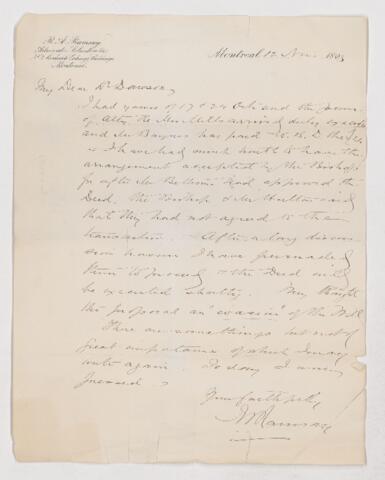 R. A. Ramsay
Advocate
Montreal
Montreal 12 Nov 1893
My Dear Dr Dawson,
I had yours of 17 & 24 Oct and the
of Atty. the Mills arrived duly
and Mr Baynes has paid the
I have had much trouble to have the
arrangement accepted by the Bishop
for after Mr Bethune had approved the
Deed, the Bishop & Mr Hutton said
that they had not agreed to the
transaction. After a long discus-
sion however I have persuaded
them to proceed & the Deed will
be executed shortly. They thought
the proposal an "evasion" of the Will
There are some things but not of
great importance of which I may
write again. Today I am very
pressed.
Yours faithfully
RARamsay